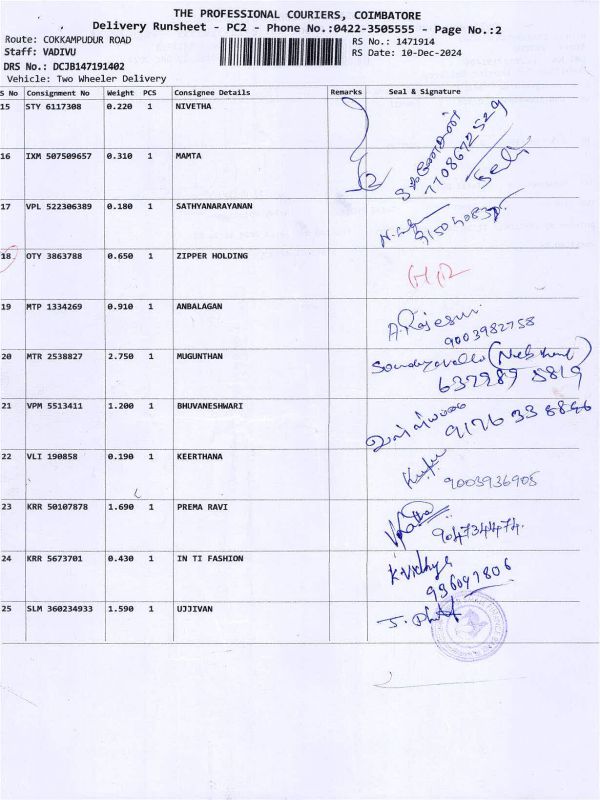 THE PROFESSIONAL COURIERS, COIMBATORE
Delivery Runsheet - PC2 - Phone No.:0422-3505555 - Page No.:2
Route: COKKAMPUDUR ROAD
RS No.: 1471914
Staff: VADIVU
RS Date: 10-Dec-2024
DRS No.: DCJB147191402
Vehicle: Two Wheeler Delivery
S No Consignment No Weight PCS Consignee Details Remarks Seal & Signature
15 STY 6117308 0.220 1 NIVETHA
7708672529
16 IXM 507509657 0.310 1 MAMTA
17 VPL 522306389 0.180 1 SATHYANARAYANAN
18 OTY 3863788 0.650 1 ZIPPER HOLDING
19 MTP 1334269 0.910 1 ANBALAGAN
A. Rajeswri
9003982758
20 MTR 2538827 2.750 1 MUGUNTHAN
637989 5819
21 VPM 5513411 1.200 1 BHUVANESHWARI
9176 33 8846
22 VLI 190858 0.190 1 KEERTHANA
9003936905
23 KRR 50107878 1.690 1 PREMA RAVI
904734474
24 KRR 5673701 0.430 1 IN TI FASHION
K. Vidhya
25 SLM 360234933 1.590 1 UJJIVAN